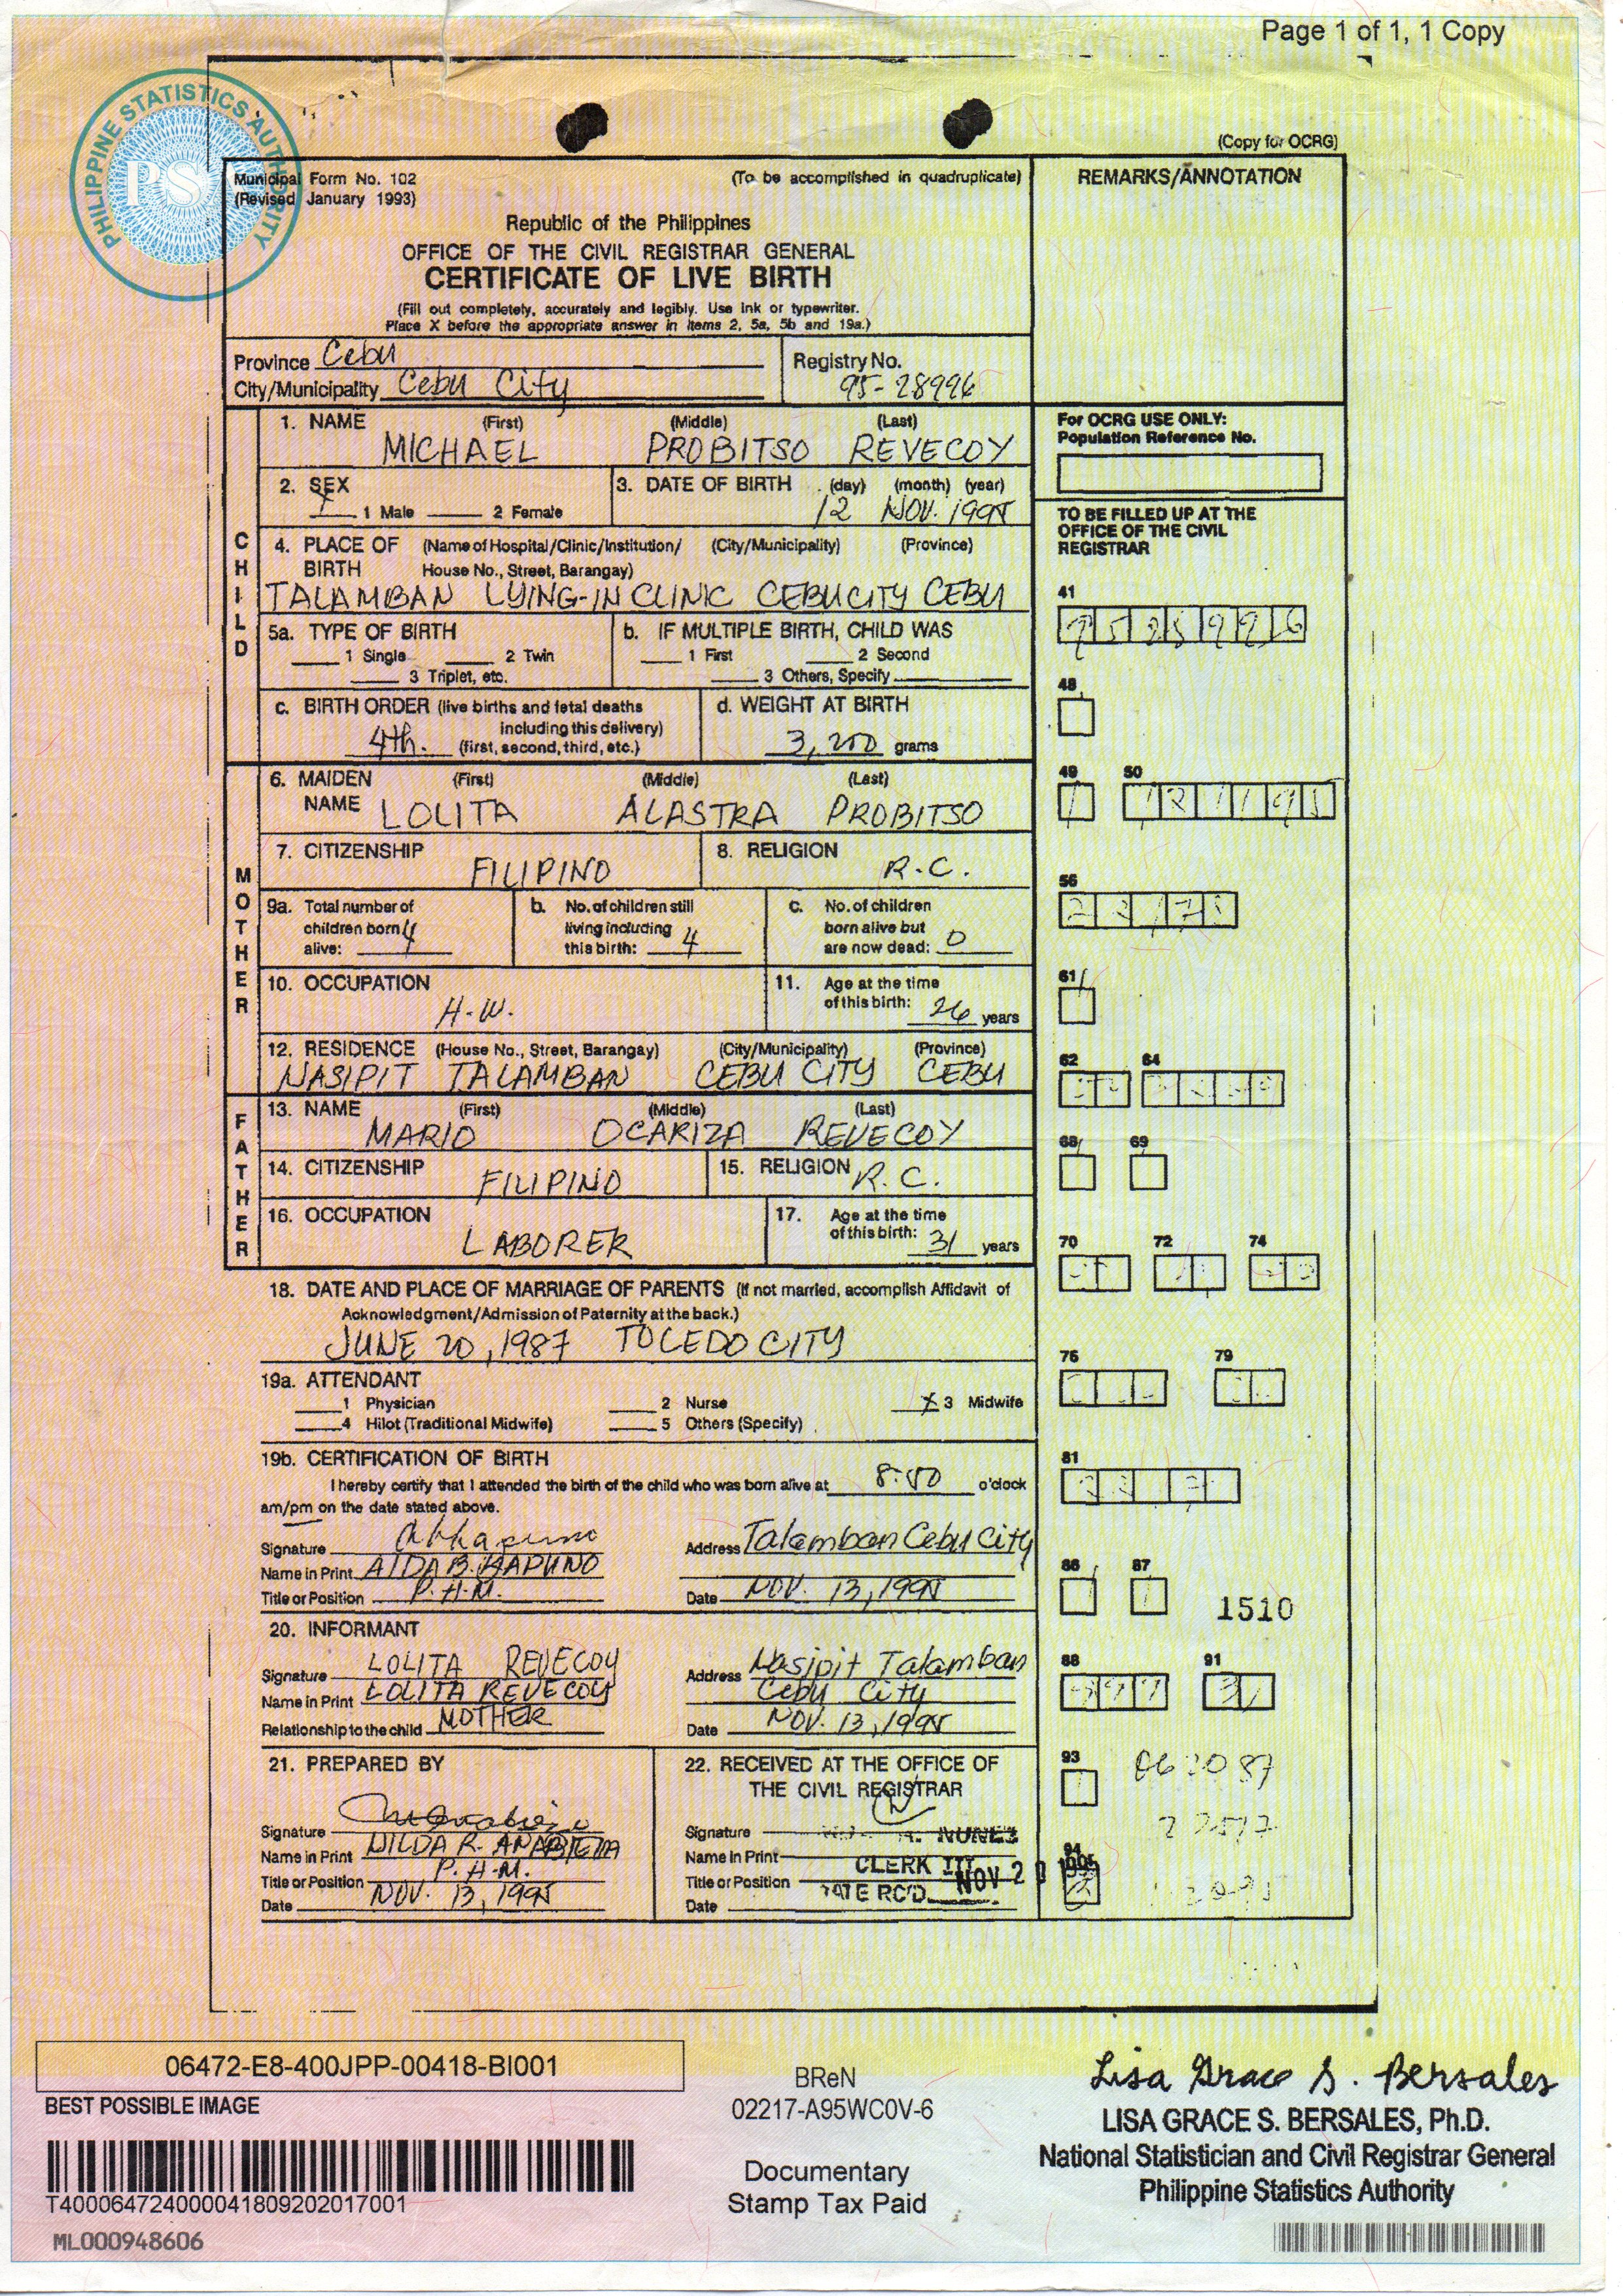 Page 1 of 1, 1 Copy
PHILIPPINE STATISTICS AUTHORITY
PSA
(Copy for OCRG)
Municipal Form No. 102 (To be accomplished in quadruplicate)
(Revised January 1993)
Republic of the Philippines
OFFICE OF THE CIVIL REGISTRAR GENERAL
CERTIFICATE OF LIVE BIRTH
(Fill out completely, accurately and legibly. Use ink or typewriter.
Place X before the appropriate answer in items 2, 5a, 5b and 19a.)
REMARKS/ANNOTATION
Province Cebu
City/Municipality Cebu City
Registry No.
95-28996
CHILD
1. NAME (First) (Middle) (Last)
MICHAEL PROBITSO REVECOY
2. SEX
X 1 Male 2 Female
3. DATE OF BIRTH (day) (month) (year)
12 NOV. 1995
4. PLACE OF BIRTH (Name of Hospital/Clinic/Institution/ (City/Municipality) (Province)
House No., Street, Barangay)
TALAMBAN LYING-IN CLINIC CEBU CITY CEBU
5a. TYPE OF BIRTH
1 Single 2 Twin
3 Triplet, etc.
b. IF MULTIPLE BIRTH, CHILD WAS
1 First 2 Second
3 Others, Specify
c. BIRTH ORDER (live births and fetal deaths
including this delivery)
4th. (first, second, third, etc.)
d. WEIGHT AT BIRTH
3,200 grams
MOTHER
6. MAIDEN NAME (First) (Middle) (Last)
LOLITA ALASTRA PROBITSO
7. CITIZENSHIP
FILIPINO
8. RELIGION
R.C.
9a. Total number of
children born
alive: 4
b. No. of children still
living including
this birth: 4
c. No. of children
born alive but
are now dead: 0
10. OCCUPATION
H.W.
11. Age at the time
of this birth: 26 years
12. RESIDENCE (House No., Street, Barangay) (City/Municipality) (Province)
NASIPIT TALAMBAN CEBU CITY CEBU
FATHER
13. NAME (First) (Middle) (Last)
MARIO OCARIZA REVECOY
14. CITIZENSHIP
FILIPINO
15. RELIGION
R.C.
16. OCCUPATION
LABORER
17. Age at the time
of this birth: 31 years
18. DATE AND PLACE OF MARRIAGE OF PARENTS (If not married, accomplish Affidavit of
Acknowledgment/Admission of Paternity at the back.)
JUNE 20, 1987 TOLEDO CITY
19a. ATTENDANT
1 Physician 2 Nurse X 3 Midwife
4 Hilot (Traditional Midwife) 5 Others (Specify)
19b. CERTIFICATION OF BIRTH
I hereby certify that I attended the birth of the child who was born alive at 8:50 o'clock
am/pm on the date stated above.
Signature
Name in Print AIDA B. KAPUNO
Title or Position P.H.M.
Address Talamban Cebu City
Date NOV. 13, 1995
20. INFORMANT
Signature LOLITA REVECOY
Name in Print LOLITA REVECOY
Relationship to the child MOTHER
Address Nasipit Talamban
Cebu City
Date NOV. 13, 1995
21. PREPARED BY
Signature
Name in Print NILDA R.
Title or Position P.H.M.
Date NOV. 13, 1995
22. RECEIVED AT THE OFFICE OF
THE CIVIL REGISTRAR
Signature
Name in Print NUNEZ
Title or Position CLERK III
DATE RC'D. NOV 2
Date
For OCRG USE ONLY:
Population Reference No.
TO BE FILLED UP AT THE
OFFICE OF THE CIVIL
REGISTRAR
41
9528996
48
49 50
1 121195
56
61
62 64
68 69
70 72 74
76 79
81
86 87
1510
88 91
93
062087
94
06472-E8-400JPP-00418-BI001
BEST POSSIBLE IMAGE
T400064724000041809202017001
ML000948606
BReN
02217-A95WC0V-6
Documentary
Stamp Tax Paid
Lisa Grace S. Bersales
LISA GRACE S. BERSALES, Ph.D.
National Statistician and Civil Registrar General
Philippine Statistics Authority